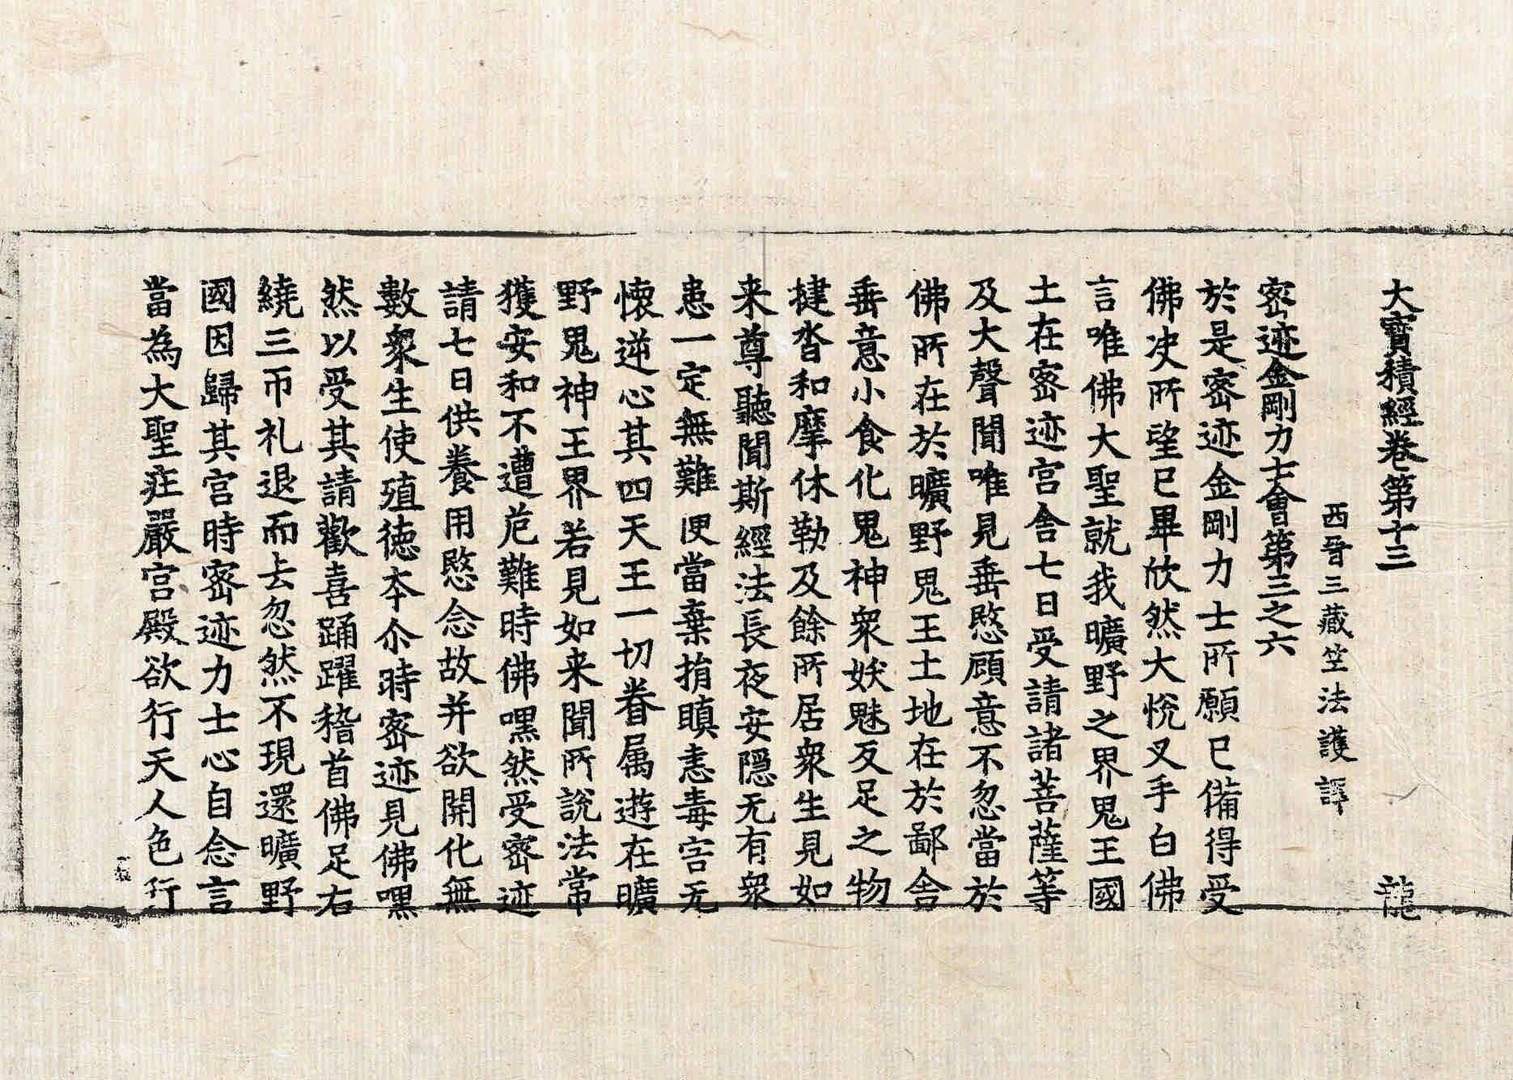 大寶積經卷第十三　龍
西晉三藏竺法護譯
密迹金剛力士會第三之六
於是密迹金剛力士所願已備得受
佛决所望已畢欣然大悅叉手白佛
言唯佛大聖就我曠野之界鬼王國
土在密迹宫舍七日受請諸菩薩等
及大聲聞唯見垂愍顧意不忽當於
佛所在於曠野鬼王土地在於鄙舍
垂意小食化鬼神衆妖魅反足之物
揵沓和摩休勒及餘所居衆生見如
来尊聽聞斯經法長夜安隠无有衆
患一定無難便當棄捐瞋恚毒害无
懷逆心其四天王一切眷属遊在曠
野鬼神王界若見如来聞所說法常
獲安和不遭厄難時佛嘿然受密迹
請七日供養用愍念故并欲開化無
數衆生使殖德本尒時密迹見佛嘿
然以受其請歡喜踊躍稽首佛足右
繞三帀礼退而去忽然不現還曠野
國因歸其宫時密迹力士心自念言
當為大聖莊嚴宫殿欲行天人色行